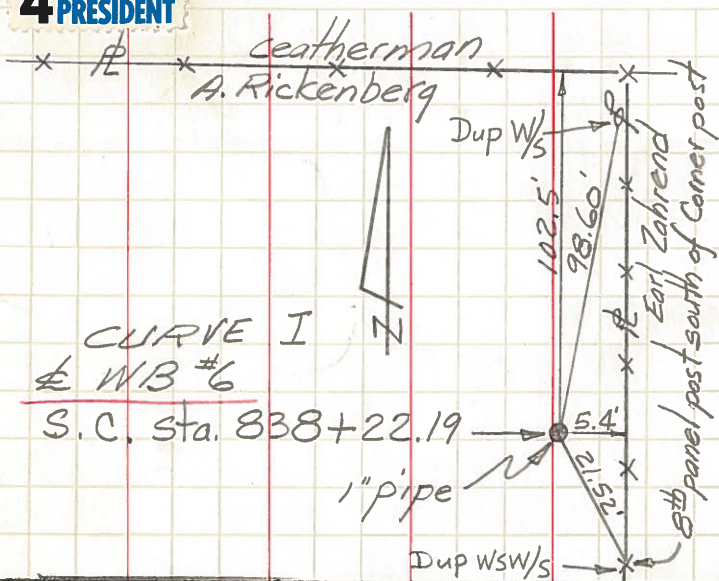 4 PRESIDENT
Ceatherman
A. Rickenberg
Dup W/S
102.5'
98.60'
Earl Zahrend
8th panel post south of Corner post
N
CURVE I
℄ WB #6
S.C. Sta. 838+22.19
5.4'
1" pipe
21.52'
Dup WSW/S